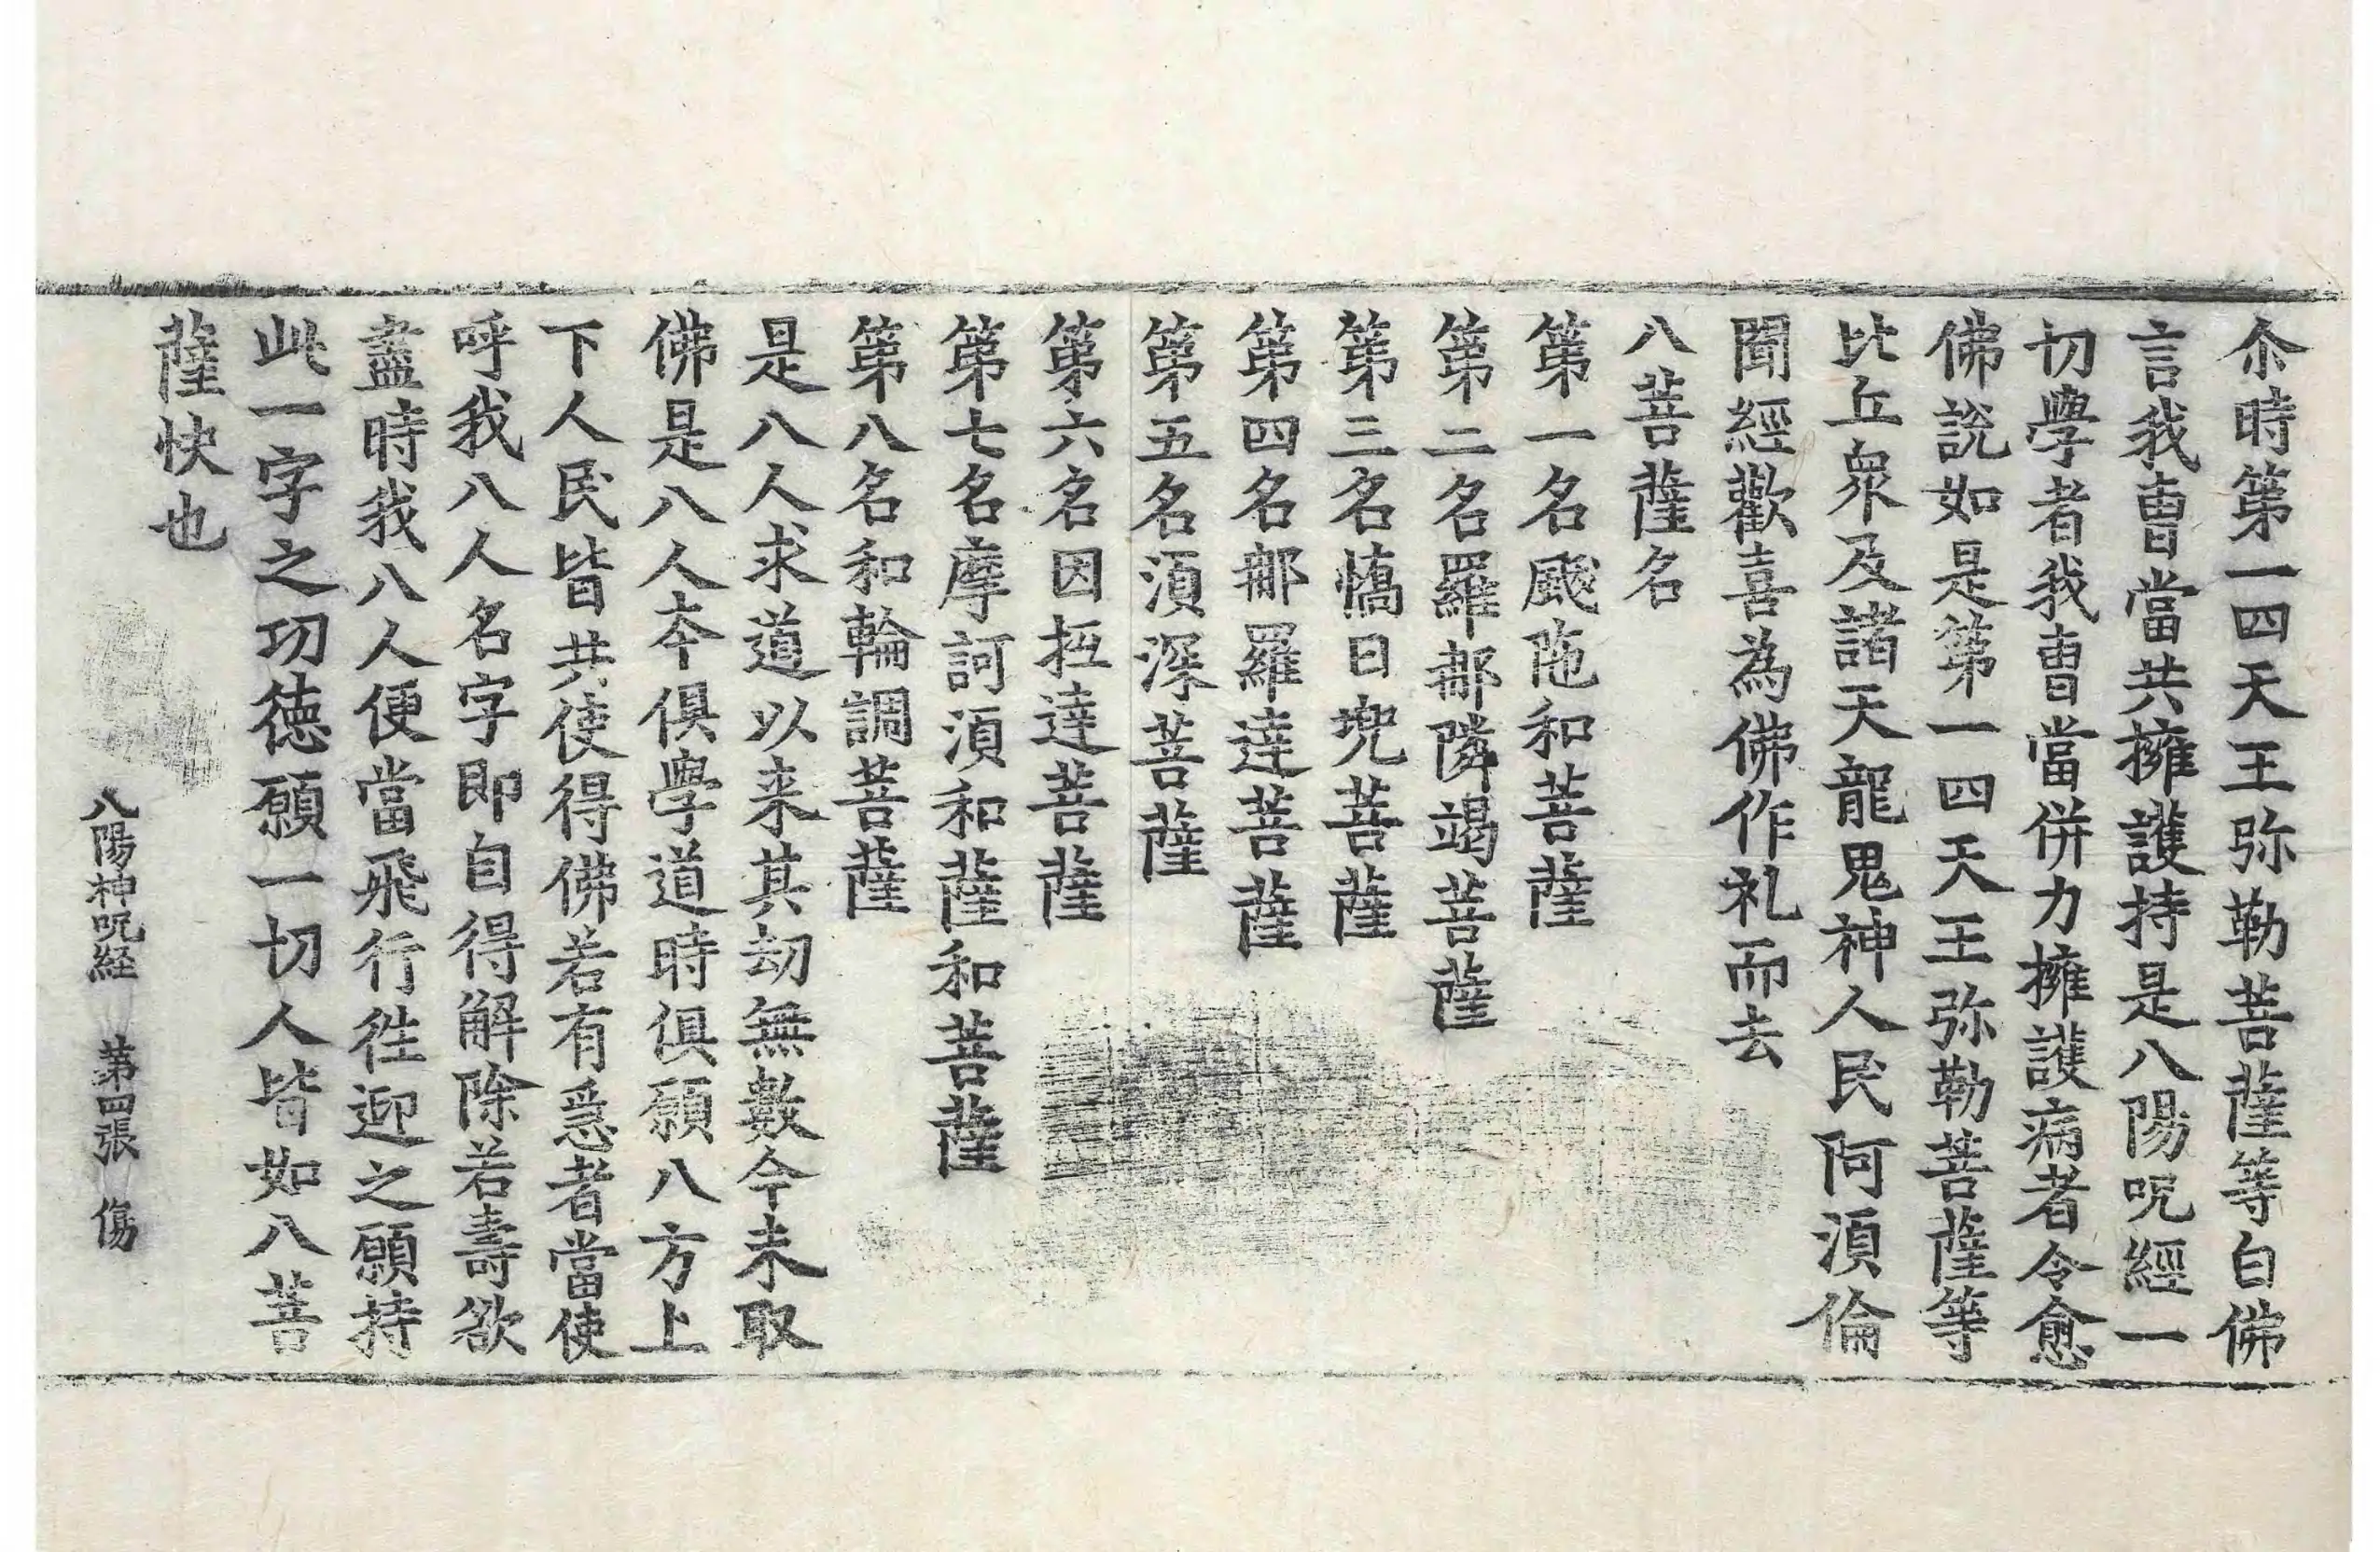 尒時第一四天王弥勒菩薩等白佛
言我曺當共擁護持是八陽呪經一
切學者我曺當併力擁護病者令愈
佛說如是第一四天王弥勒菩薩等
比丘衆及諸天龍鬼神人民阿湏倫
聞經歡喜為佛作礼而去
八菩薩名
第一名颰陁和菩薩
第二名羅郍隣竭菩薩
第三名憍日兠菩薩
第四名郍羅達菩薩
第五名湏深菩薩
第六名因抵達菩薩
第七名摩訶湏和薩和菩薩
第八名和輪調菩薩
是八人求道以来其劫無數今未取
佛是八人夲俱學道時俱願八方上
下人民皆共使得佛若有急者當使
呼我八人名字即自得解除若壽欲
盡時我八人便當飛行徃迎之願持
此一字之功徳願一切人皆如八菩
薩快也
八陽神呪経 第四張 傷